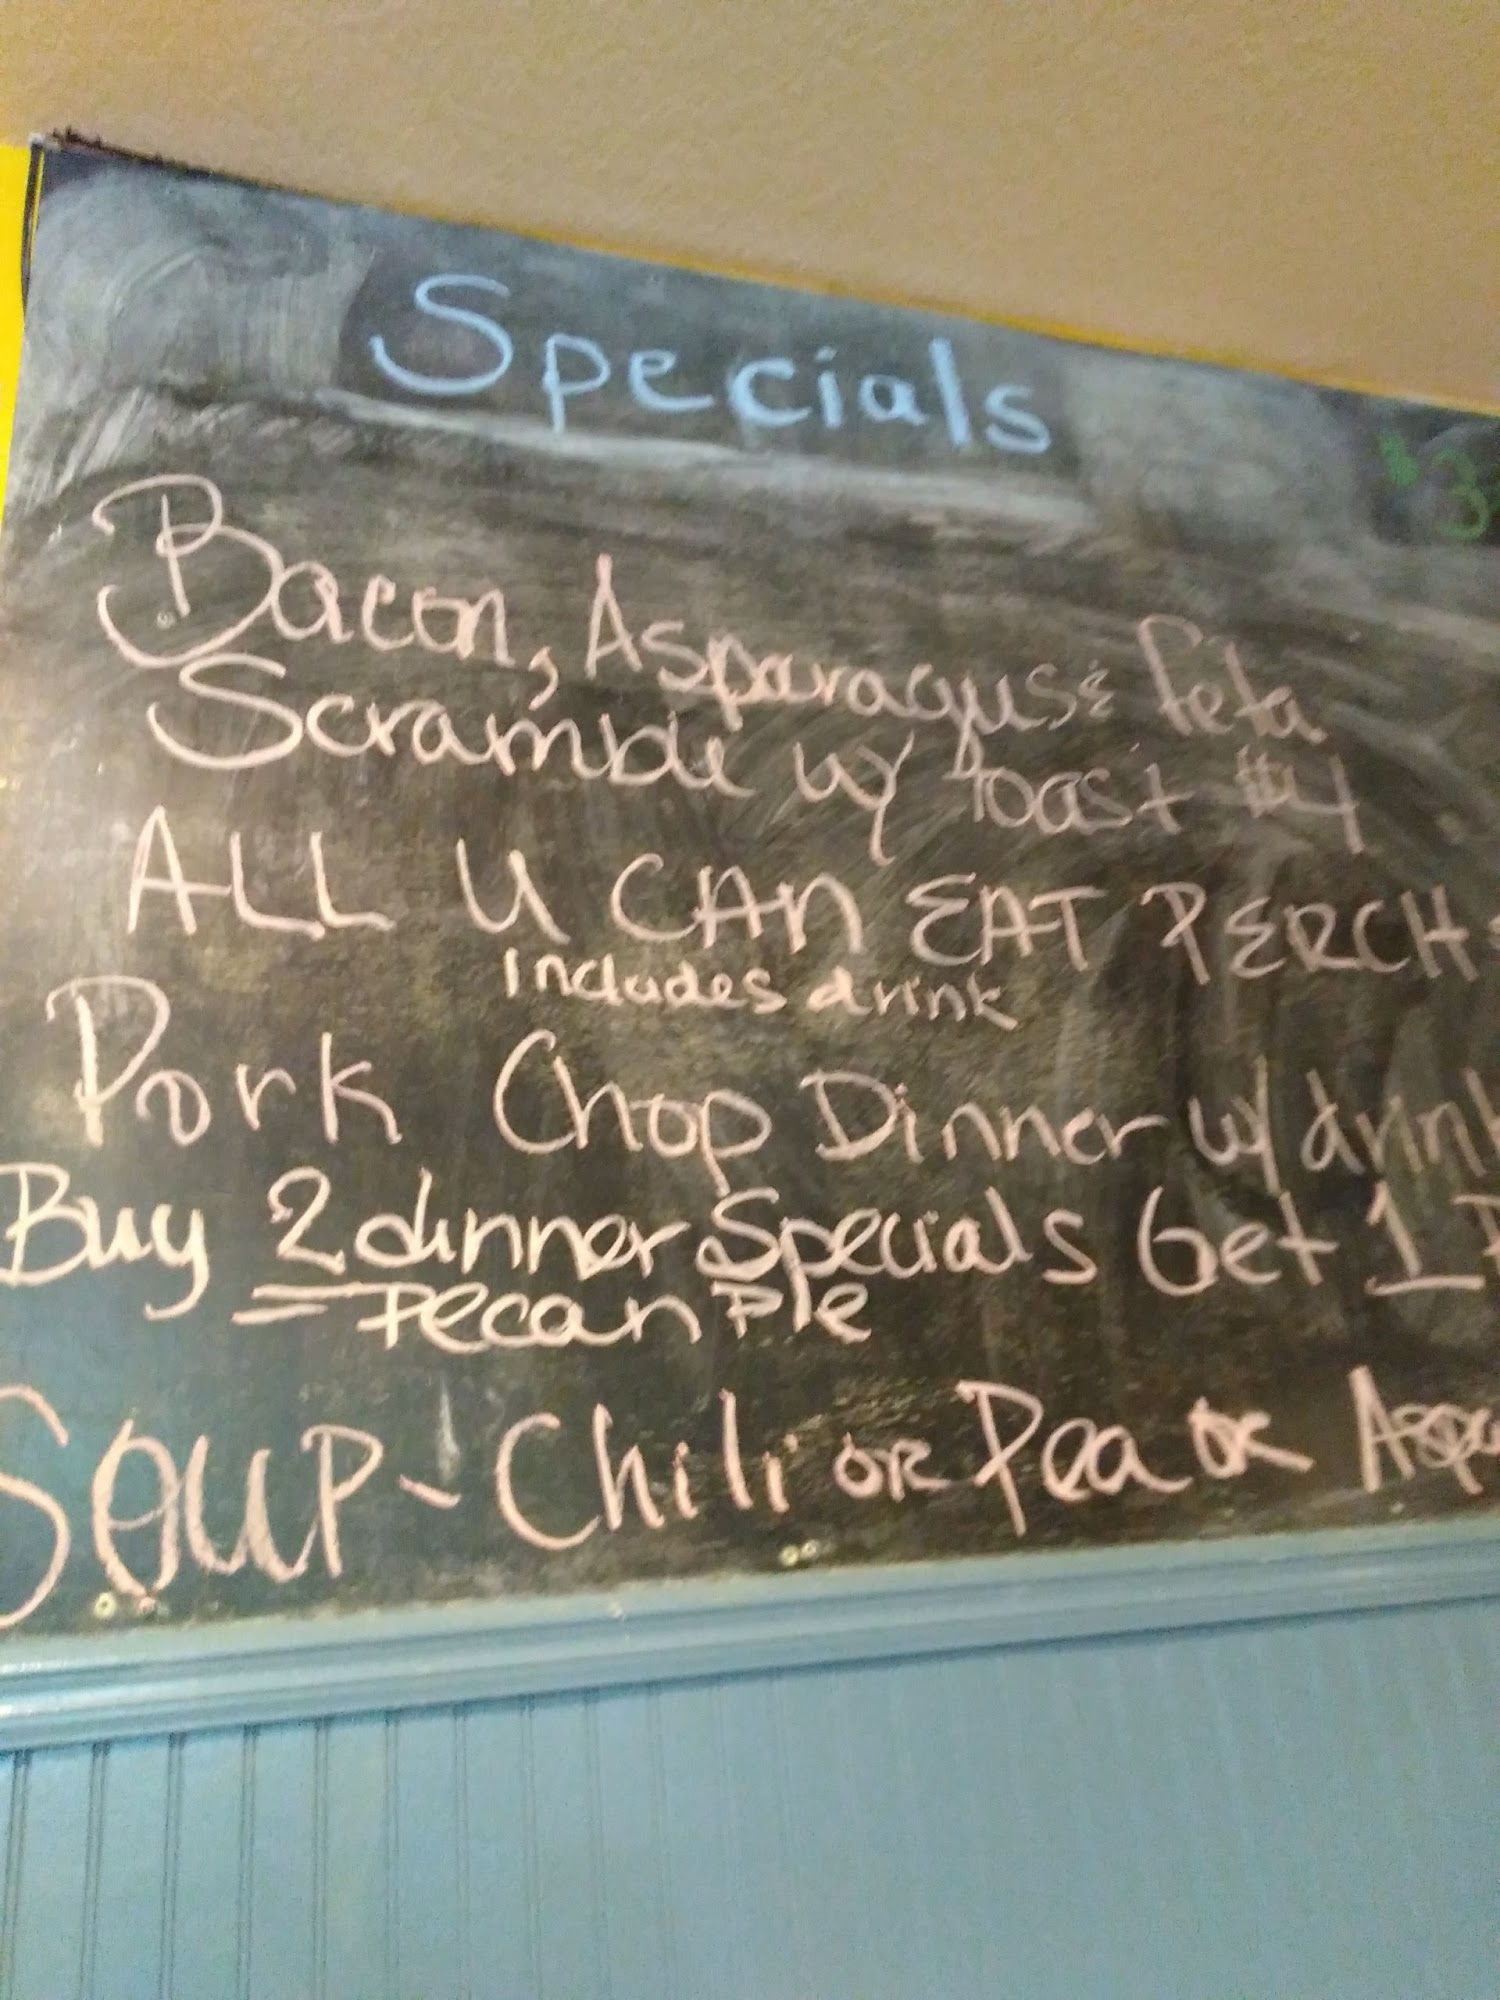 Specials
$3
Bacon, Asparagus & Feta
Scramble w/ Toast
ALL U CAN EAT PERCH
Includes drink
Pork Chop Dinner w/ drink
Buy 2 dinner Specials Get 1
Pecan Pie
Soup - Chili or Pea or